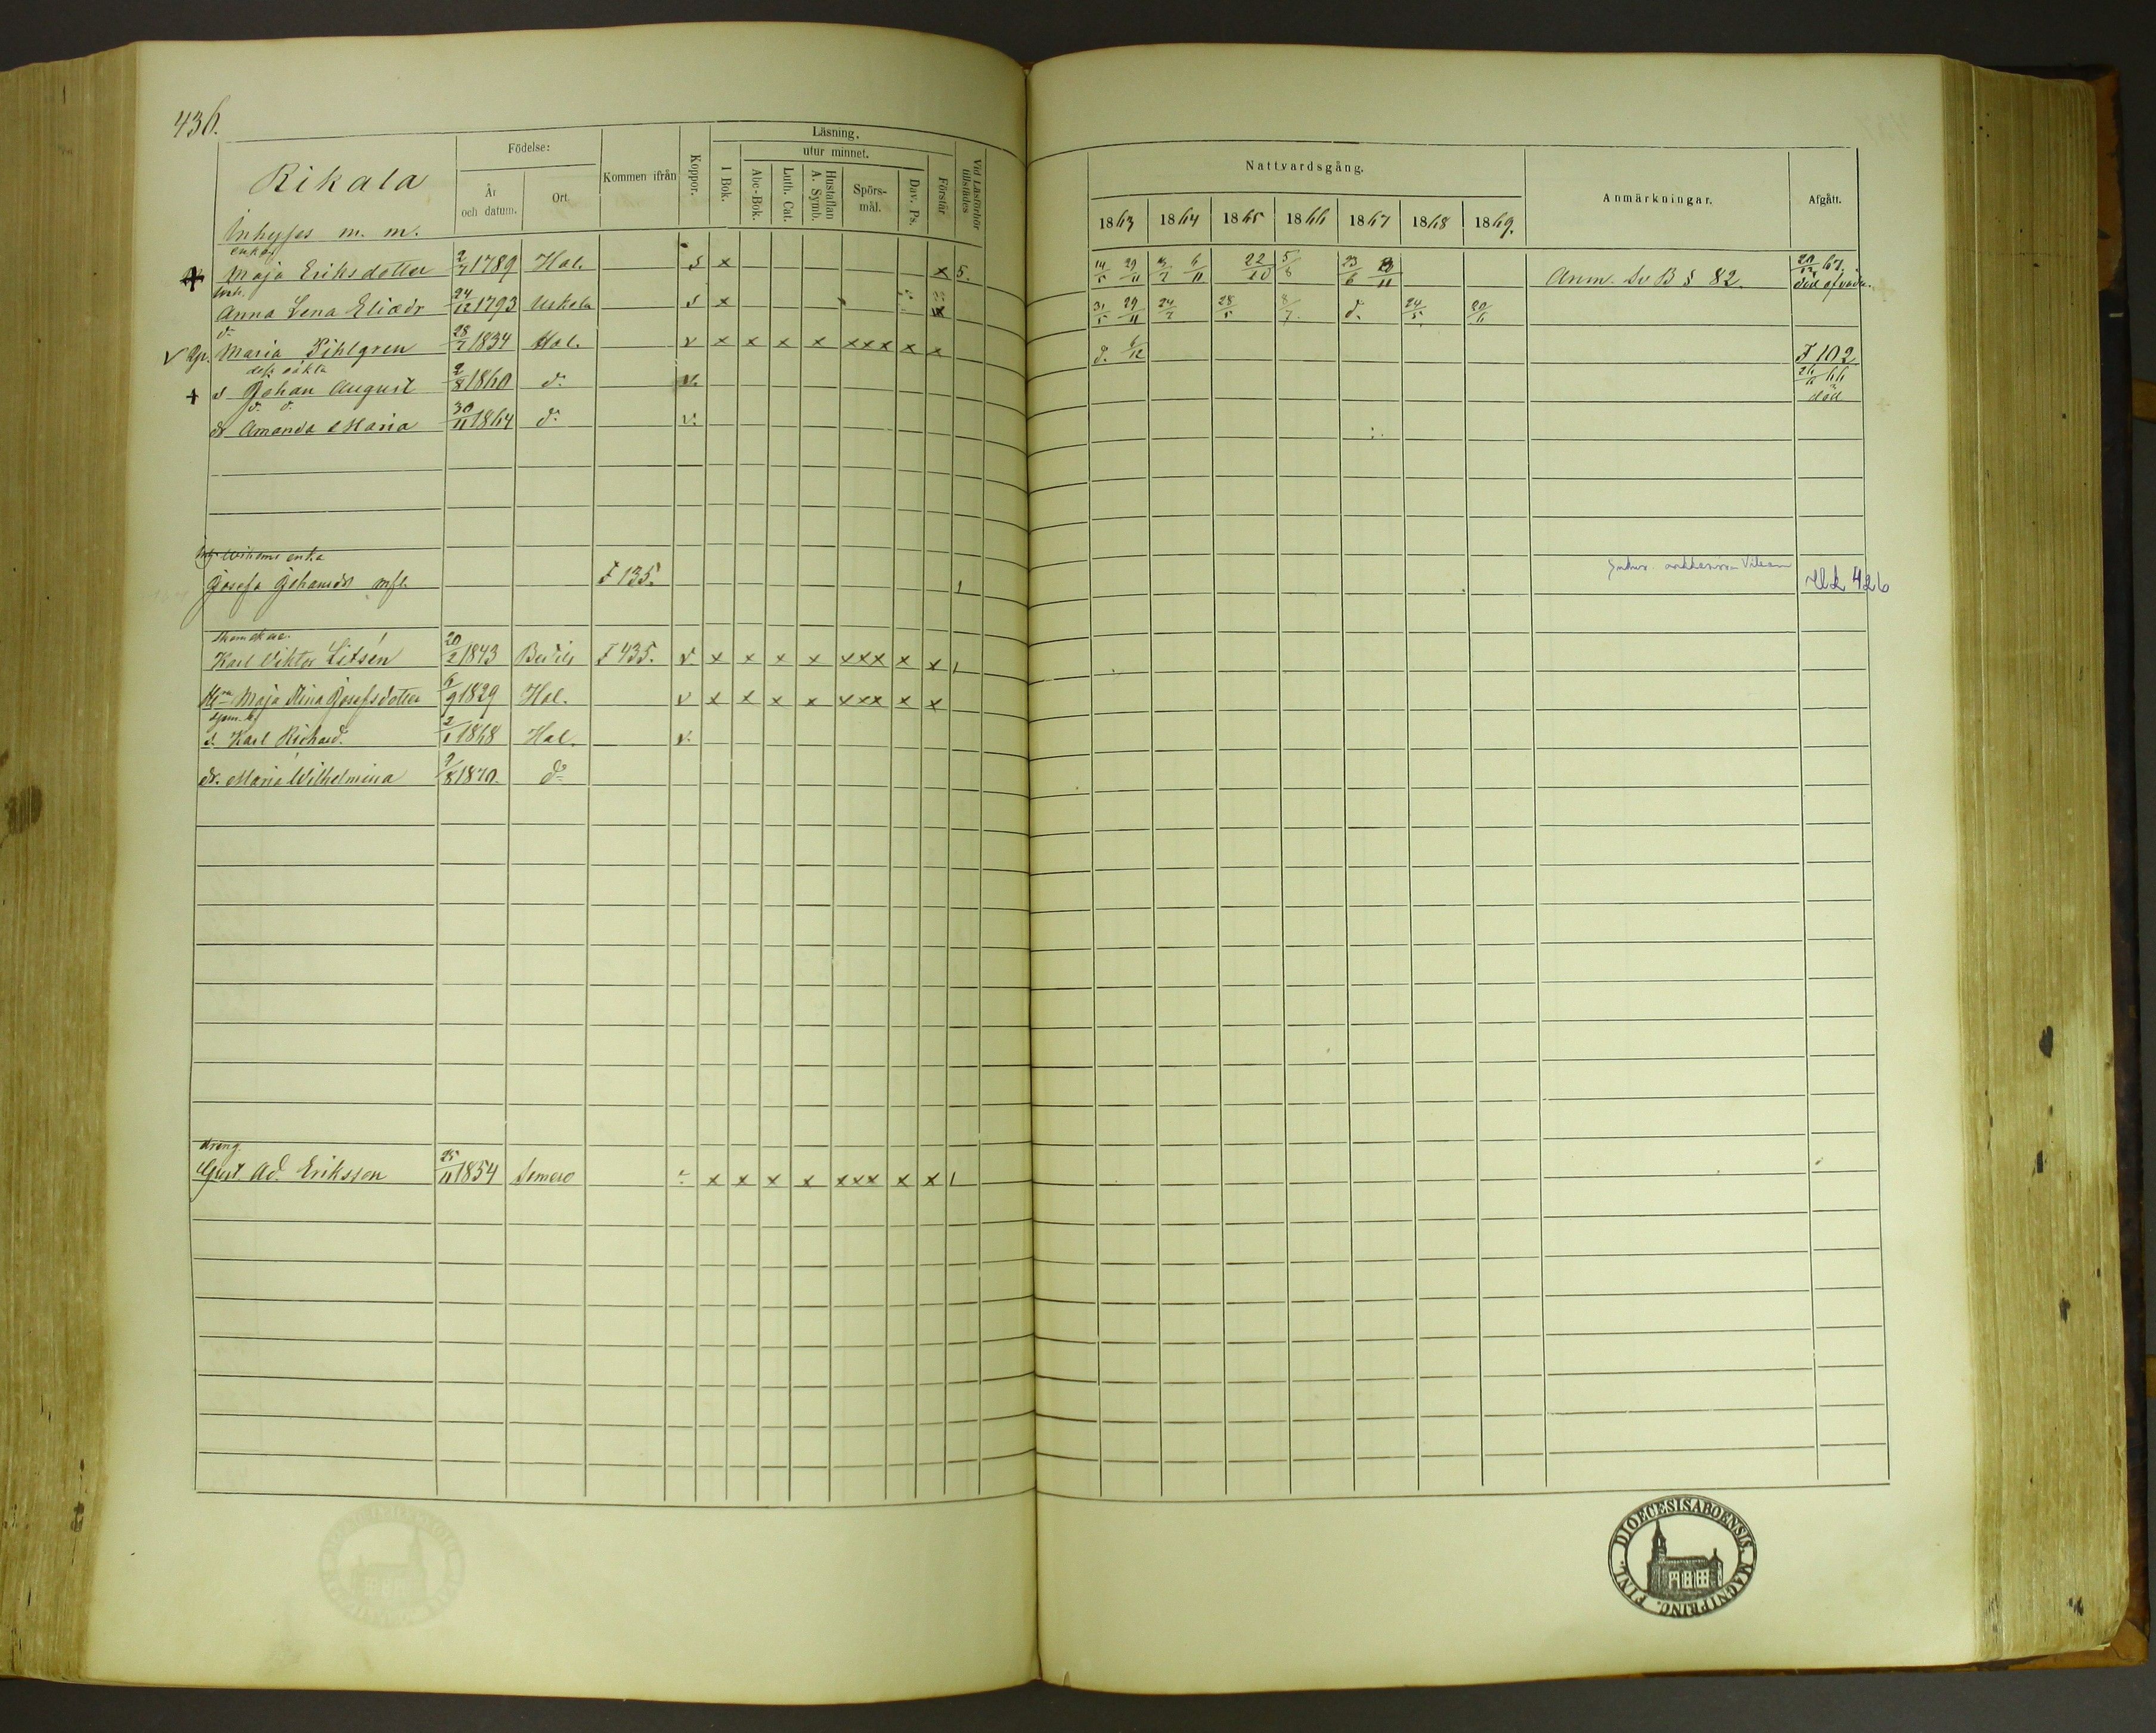 436.
Rikala
Inhyses m. m.
Födelse:
År och datum.
Ort
Kommen ifrån
Koppor.
Läsning.
I Bok.
utur minnet.
Abc-Bok.
Luth. Cat.
Hustaflan A. Symb.
Spörs-mål.
Dav. Ps.
Förstår
Vid Läsförhör tillstädes
Nattvardsgång.
1863 1864 1865 1866 1867 1868 1869.
Anmärkningar.
Afgått.
enkan
Maja Eriksdotter 2/7 1789 Hal. s x x 5. 14/5 29/11 3/7 6/11 22/10 5/8 23/6 Anm. Sv B § 82 67.
Anna Lena Eliædr 24/12 1793 Uskela s x 31/5 29/11 24/7 28/5 8/7. d. 24/5 20/6
d:
v Maria Pihlgren 28/7 1834 Hal. v x x x x xxx x x d. 6/12 F 102
oäkta
+ s Johan August 2/8 1860 d: v. 66 död
d. d.
dr Amanda Maria 30/11 1864 d: v.
enka
Josefa Johansdr F 135. 1 426
Karl Viktor Litsén 20/2 1843 F 435. v x x x x xxx x x 1
Maja Stina Josefsdotter 6/9 1829 Hal. v x x x x xxx x x
s. Karl Richard. 2/1 1868 Hal. v.
dr. Maria Wilhelmina 9/8 1870. do
dreng.
Gust. Ad. Eriksson 25/11 1854 x x x x xxx x x 1
FINL. DIOECESIS ABOENSIS. MAGNI PRINC.